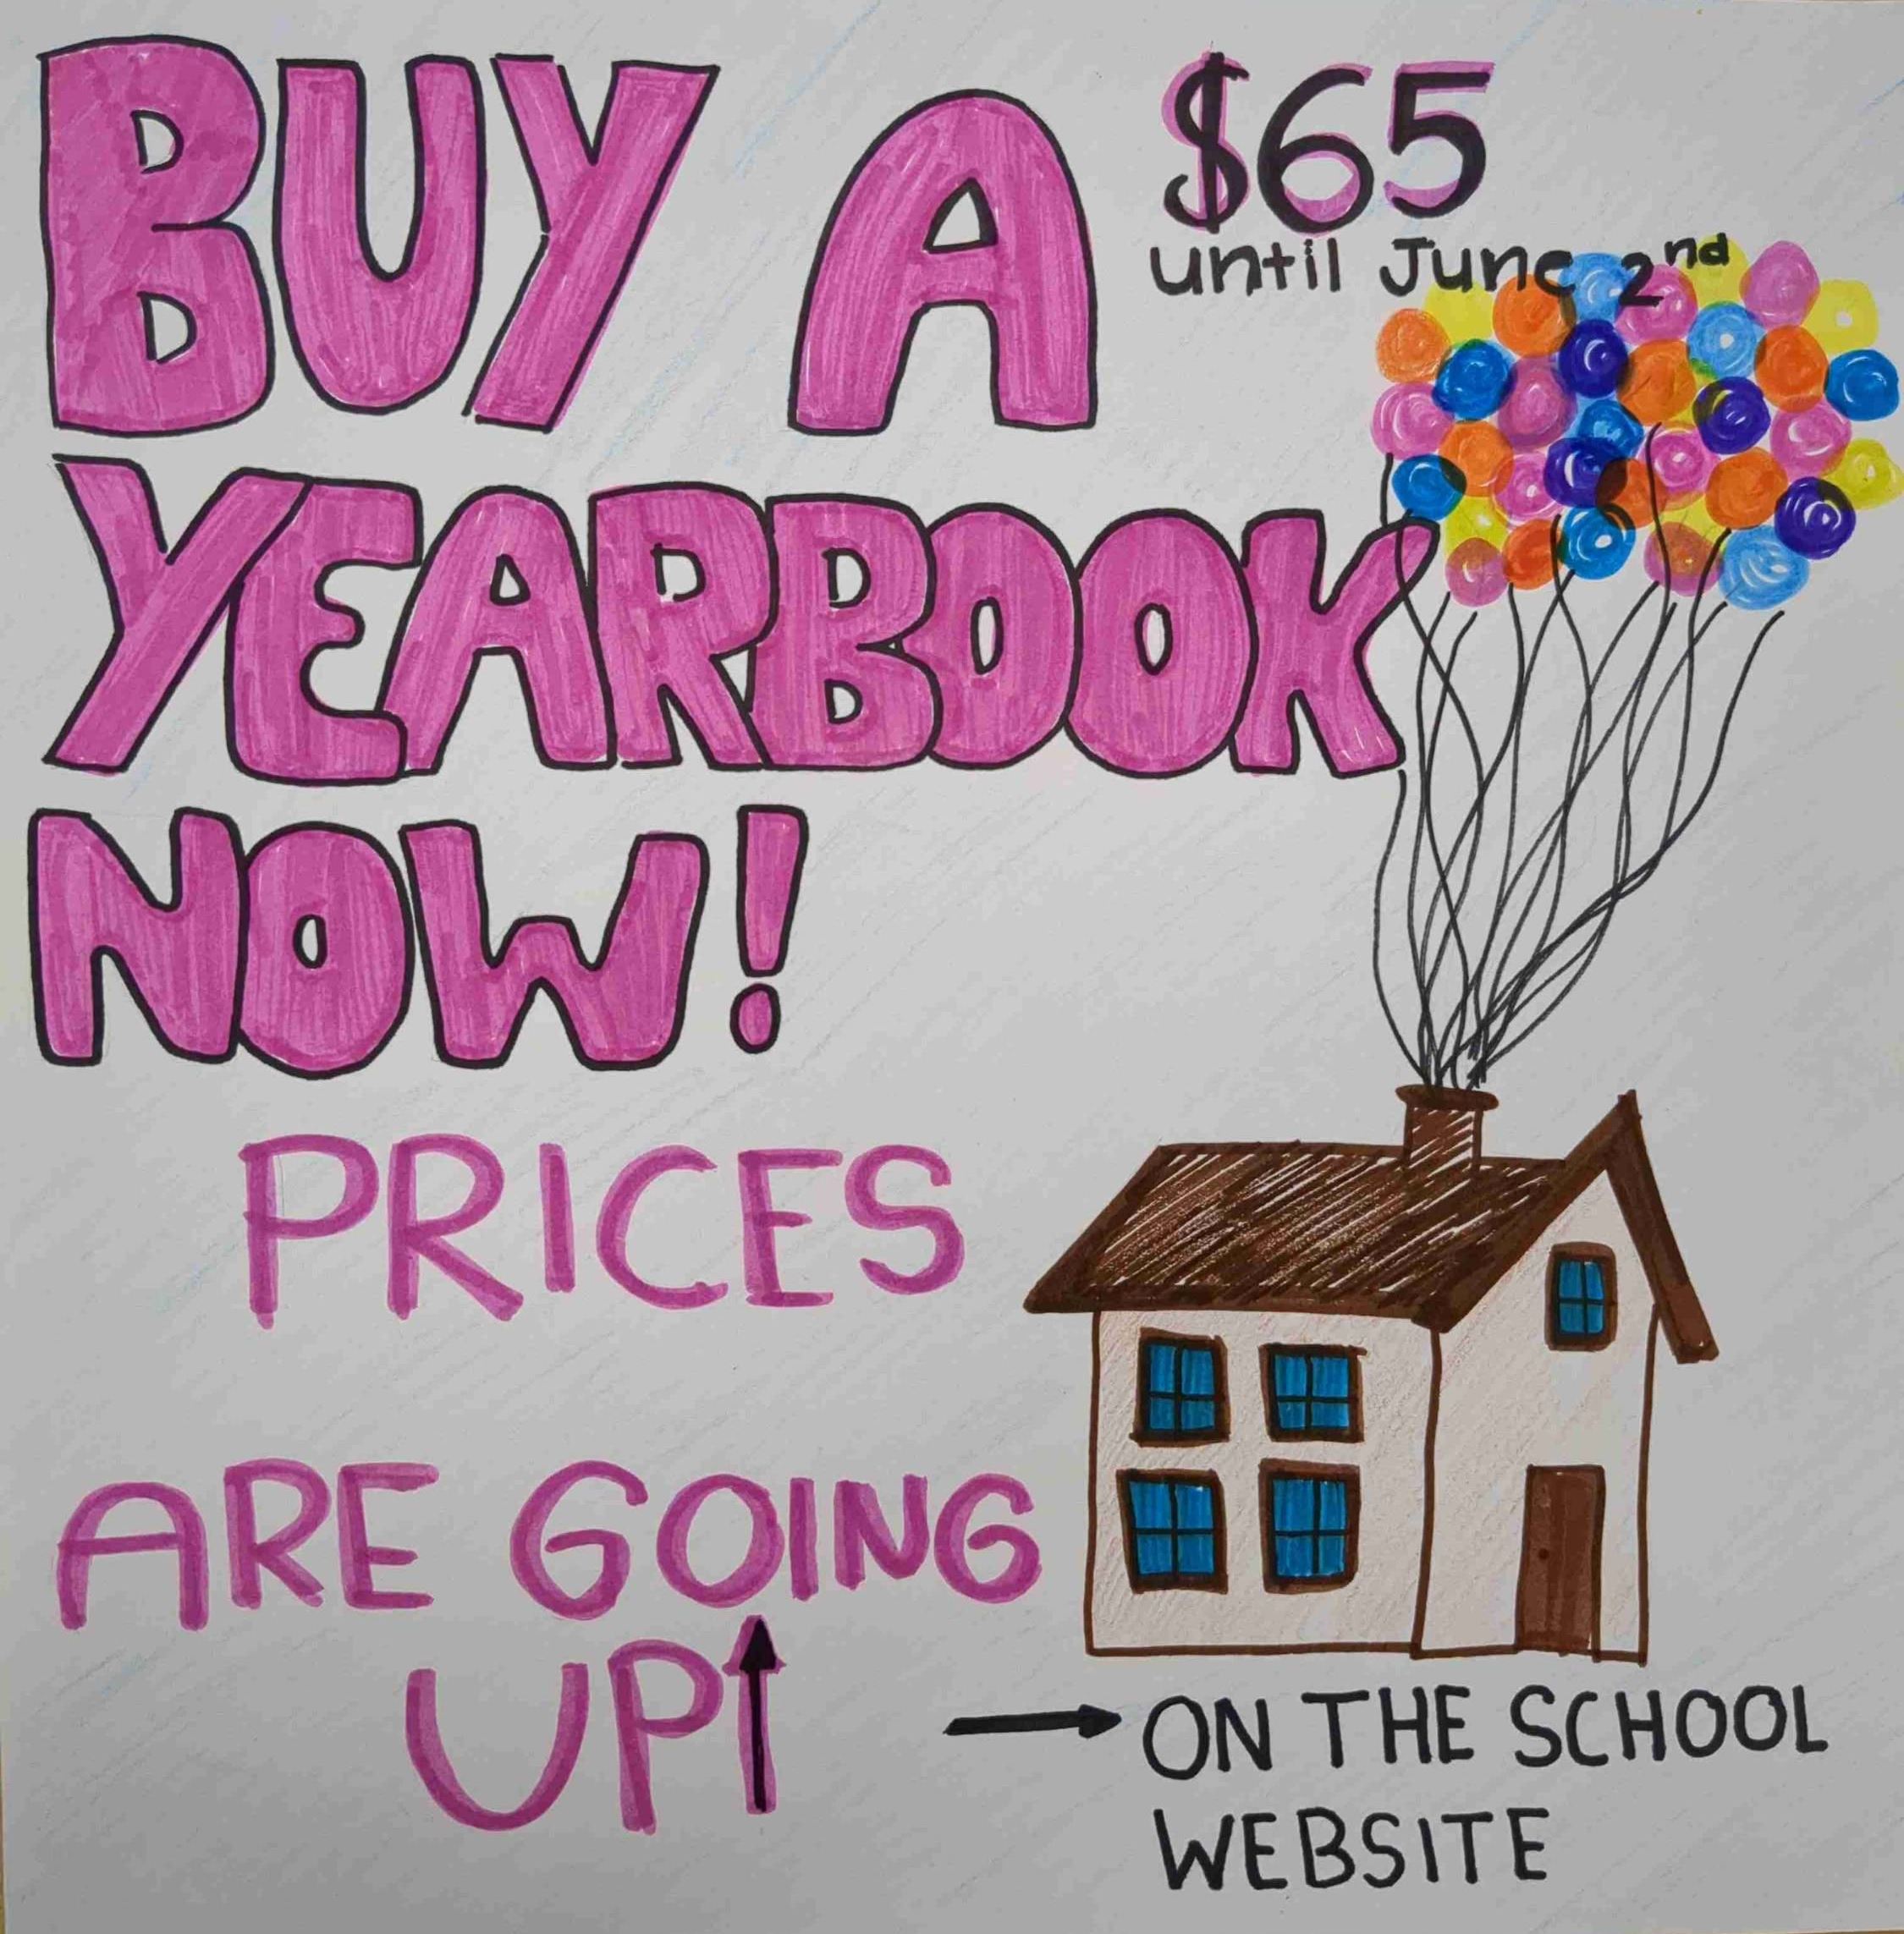 BUY A
$65
until June 2nd
YEARBOOK
NOW!
PRICES
ARE GOING
UP↑
→ ON THE SCHOOL
WEBSITE